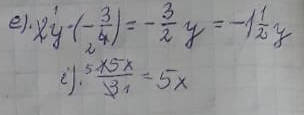 e). 2y¹ · (-3/₂4) = -3/2 y = -1 1/2 y
i). ⁵15x/31 = 5x